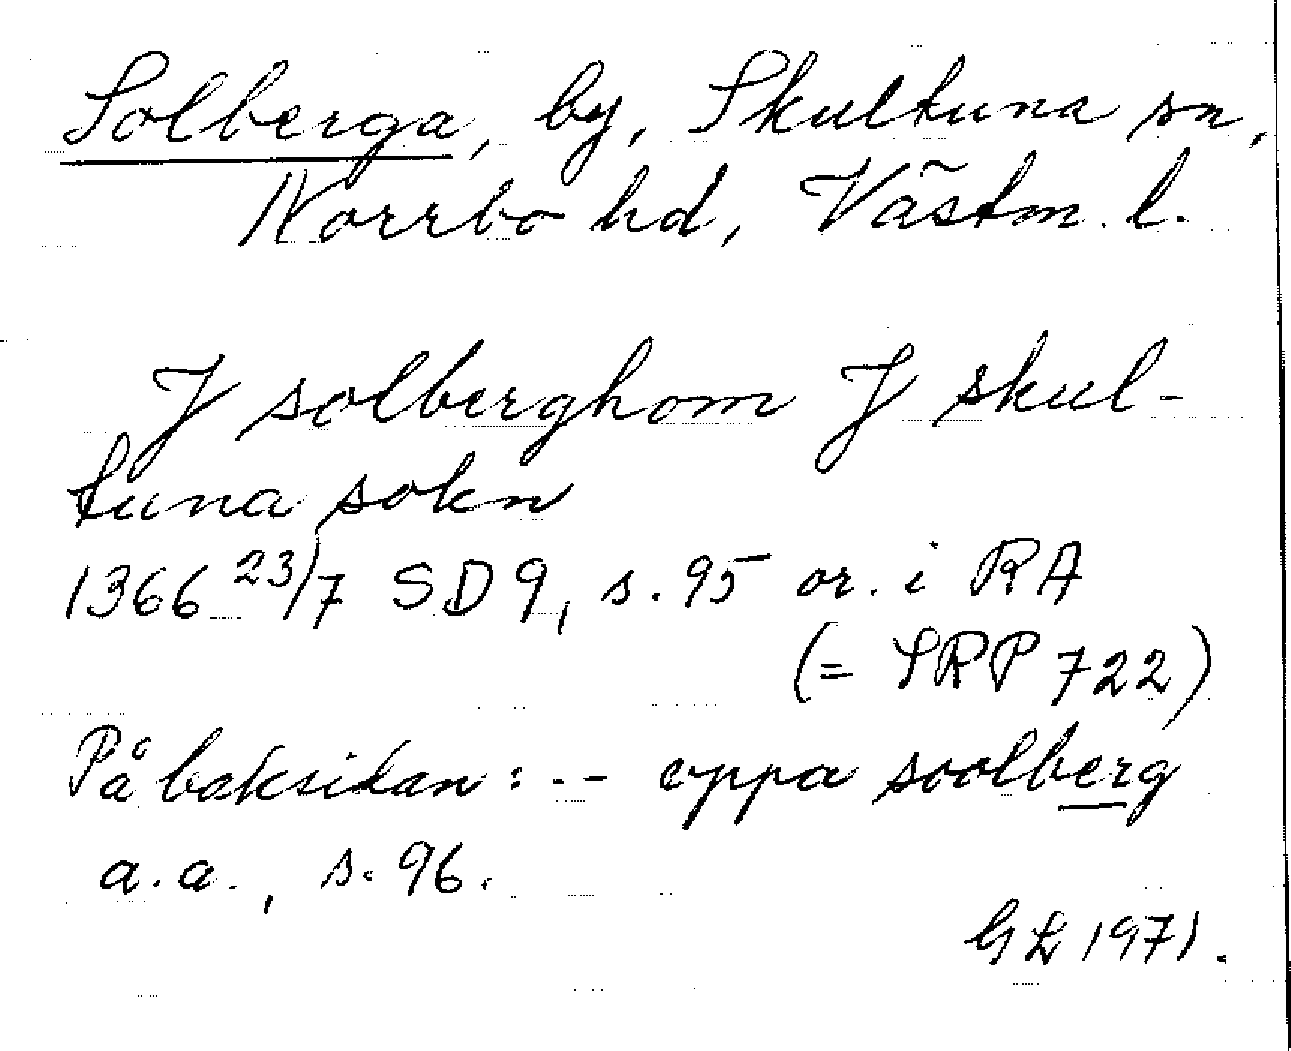 Solberga, by, Skultuna sn,
Norrbo hd, Västm. l.
J solberghom J skul-
tuna sokn
1366 23/7 SD 9, s. 95 or. i RA
(= SRP 722)
På baksidan: -- oppa soolberg
a.a., s. 96.
GL 1971.